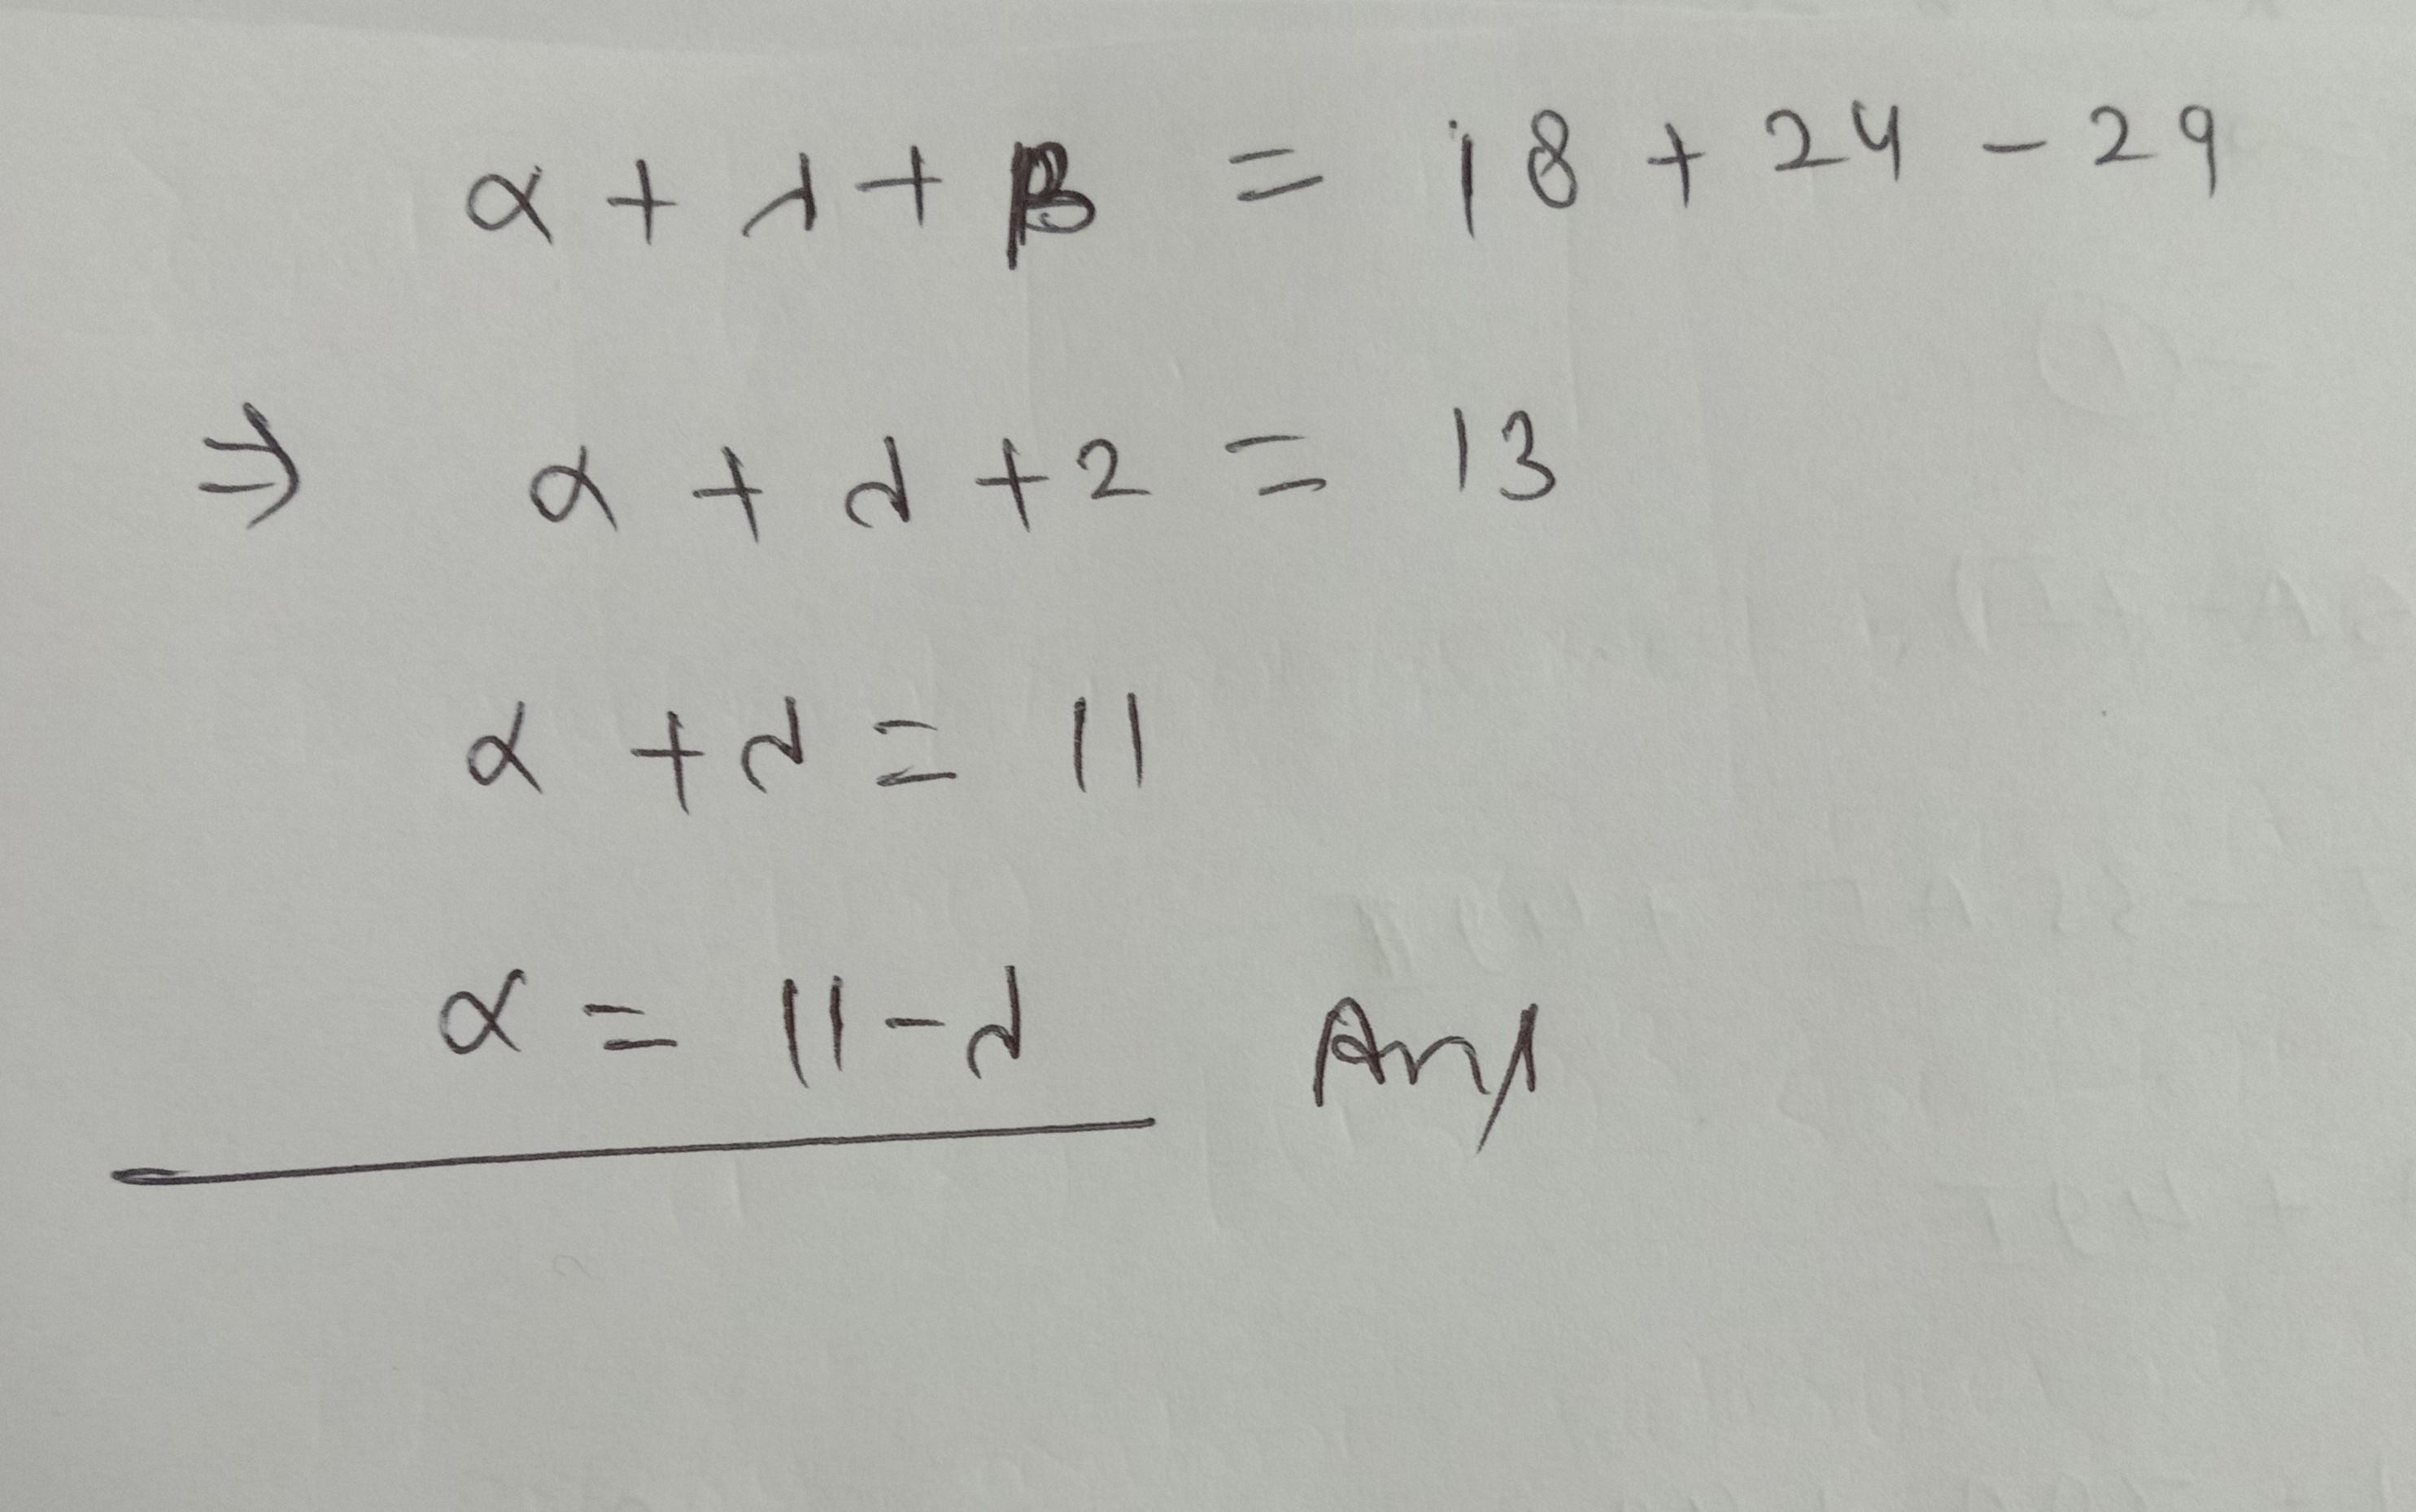 α + λ + β = 18 + 24 - 29
⇒ α + λ + 2 = 13
α + λ = 11
α = 11 - λ Ans